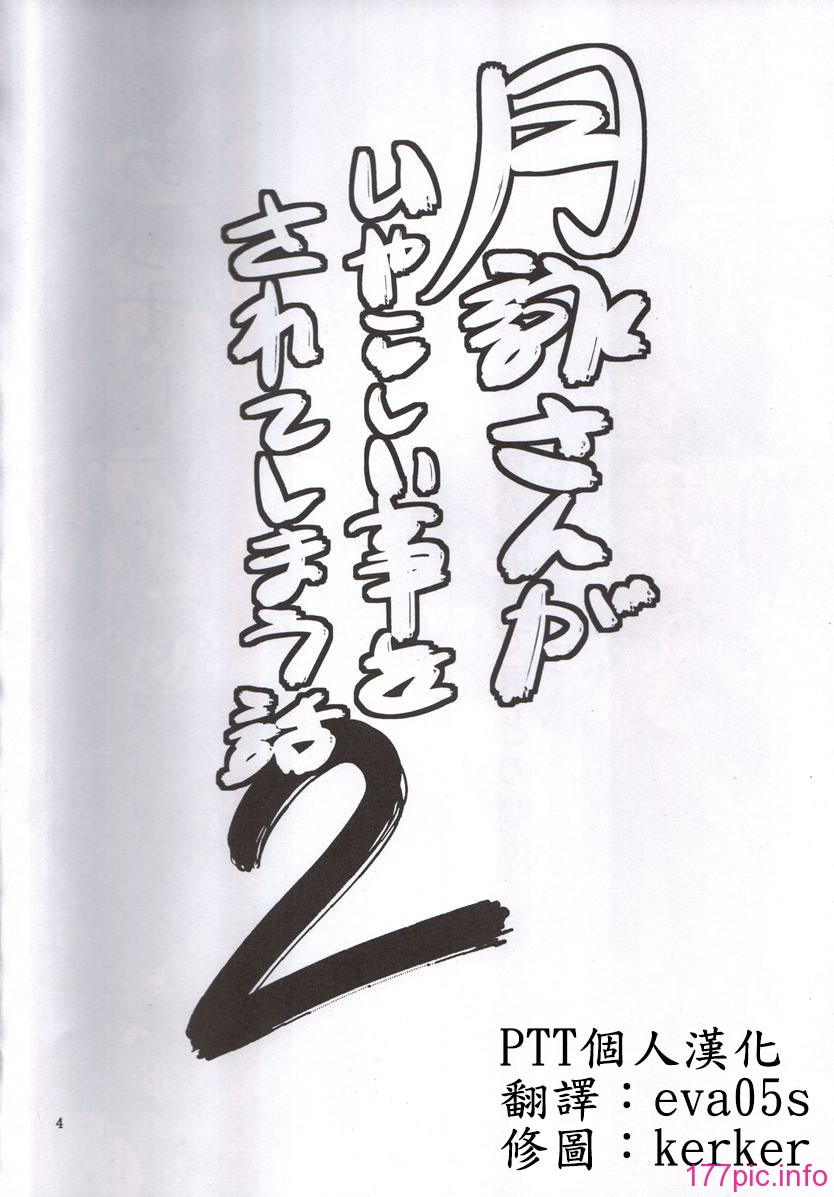 月詠さんが
いやらしい事を
されてしまう話
2
PTT個人漢化
翻譯：eva05s
修圖：kerker
4
177pic.info